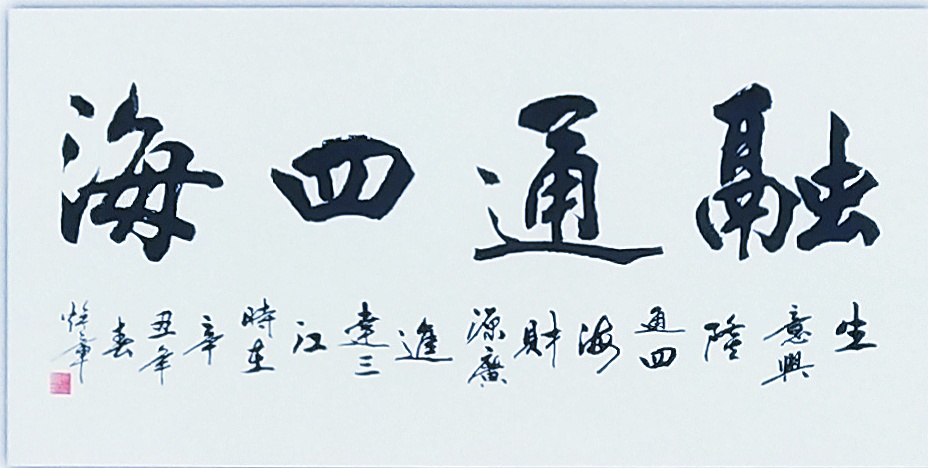 融通四海
生意興隆通四海財源廣進達三江時在辛丑年春